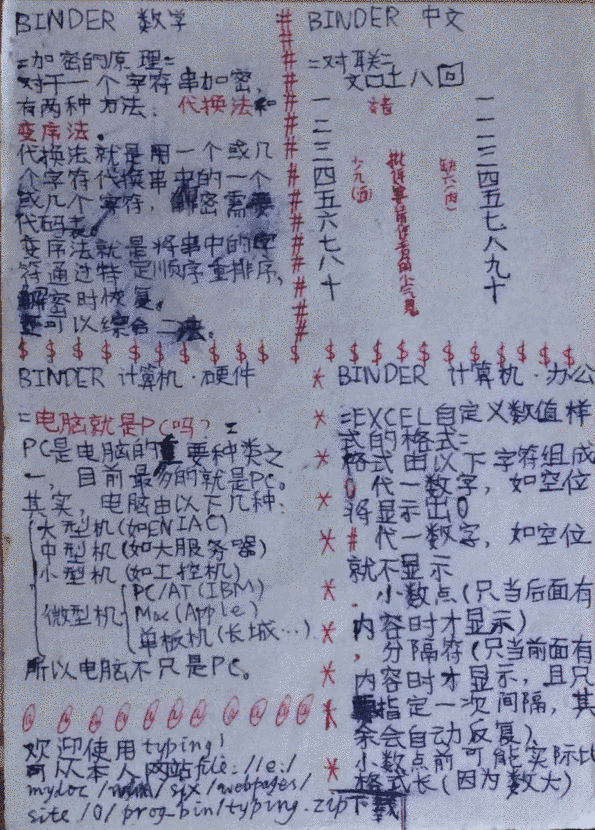 BINDER 数学
=加密的原理=
对于一个字符串加密,
有两种方法: 代换法和
变序法。
代换法就是用一个或几
个字符代换串中的一个
或几个字符, 解密需要
代码表。
变序法就是将串中的字
符通过特定顺序重排序,
解密时恢复。
可以综合二法。
BINDER 中文
=对联=
一
二
三
四
五
六
七
八
十
一
一
二
三
四
五
七
八
九
十
缺六(肉)
少九(酒)
$ $ $ $ $ $ $ $ $ $ $ $ $ $ $ $ $ $ $ $ $ $ $
BINDER 计算机·硬件
=电脑就是PC吗?=
PC是电脑的重要种类之
一, 目前最多的就是PC。
其实, 电脑由以下几种:
大型机(如ENIAC)
中型机(如大服务器)
小型机(如工控机)
微型机
PC/AT(IBM)
Mac(Apple)
单板机(长城…)
所以电脑不只是PC。
@ @ @ @ @ @ @ @ @ @
欢迎使用typing!
可从本人网站file://e:/
myloc/ /spx/webpages/
site/0/prog_bin/typing.zip下载
BINDER 计算机·办公
=EXCEL自定义数值样
式的格式=
格式由以下字符组成
0 代一数字, 如空位
将显示出0
# 代一数字, 如空位
就不显示
. 小数点(只当后面有
内容时才显示)
, 分隔符(只当前面有
内容时才显示, 且只
要指定一次间隔, 其
余会自动反复)
小数点前可能实际比
格式长(因为数大)